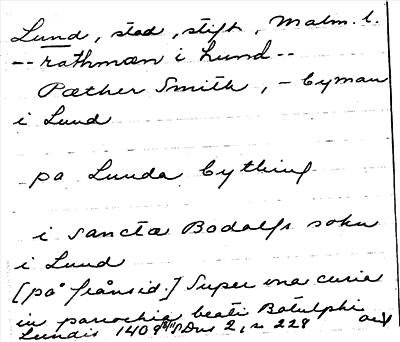 Lund, stad, stift, Malm. l.
-- rathmæn i Lund --
Pæther Smith, - byman
i Lund
pa Lunda bything
i sancta Bodalfs sokn
i Lund
[på frånsid.] Super una curia
in parochia beati Botulphi
Lundis 1409 2, s 228